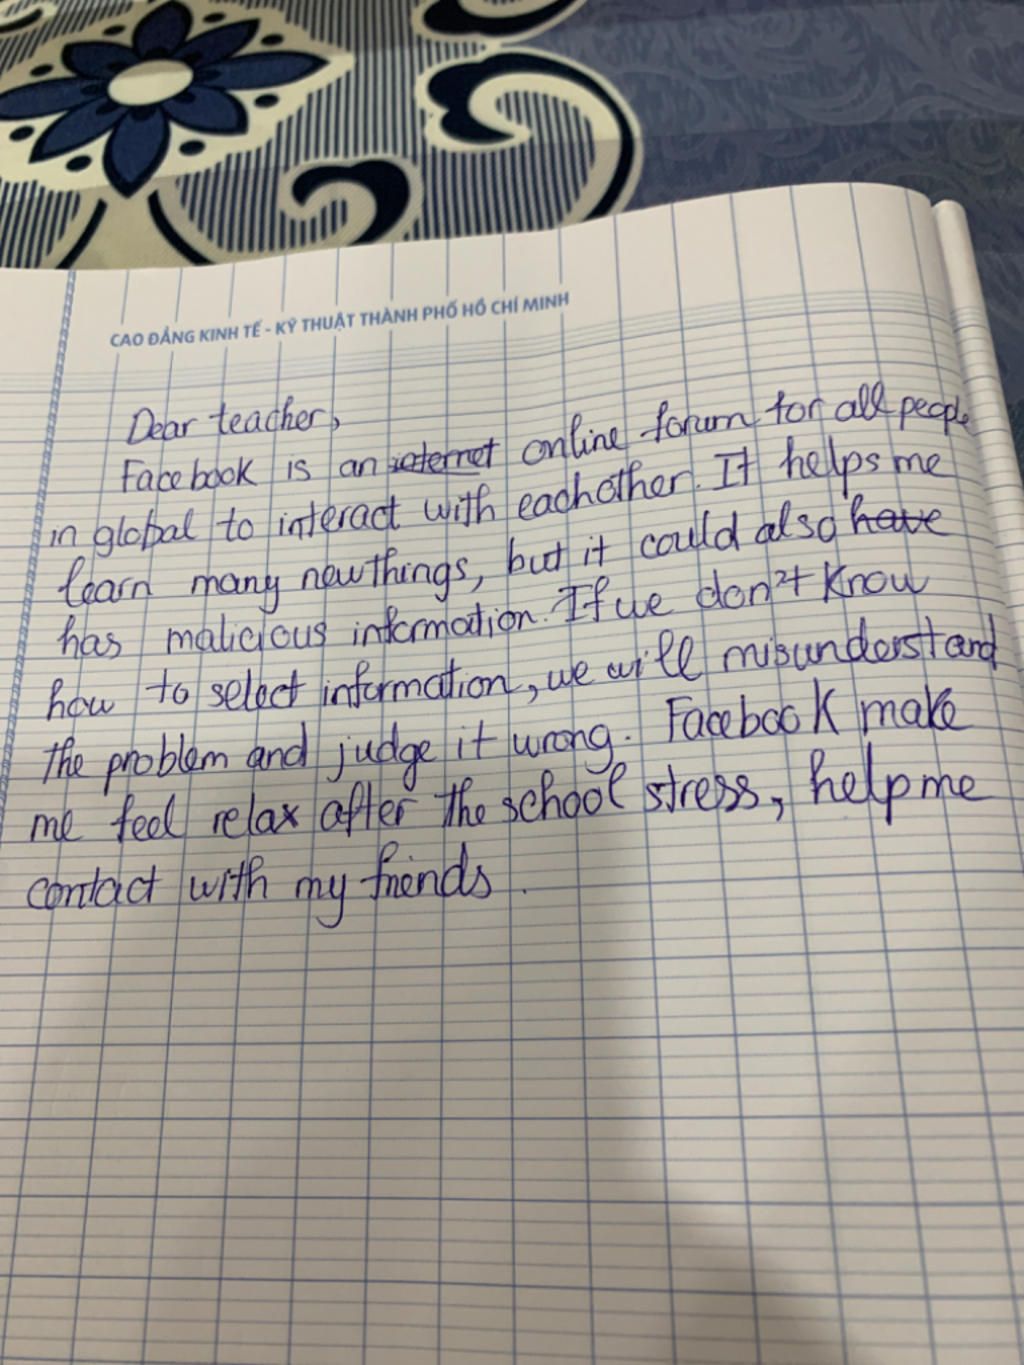 CAO ĐẲNG KINH TẾ - KỸ THUẬT THÀNH PHỐ HỒ CHÍ MINH
Dear teacher,
Facebook is an internet online forum for all people
in global to interact with eachother. It helps me
learn many new things, but it could also have
has malicious information. If we don't know
how to select information, we will misunderstand
the problem and judge it wrong. Facebook make
me feel relax after the school stress, help me
contact with my friends.